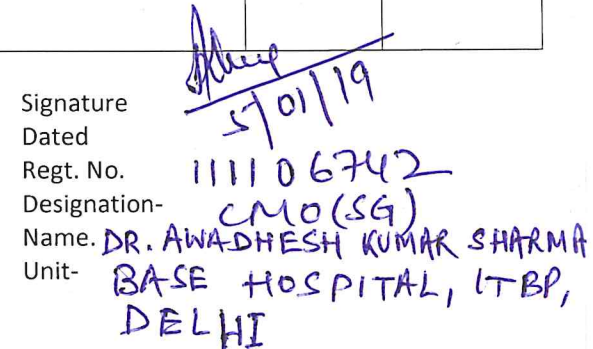 Signature
Dated 5/01/19
Regt. No. 111106742
Designation- CMO(SG)
Name. DR. AWADHESH KUMAR SHARMA
Unit- BASE HOSPITAL, ITBP,
DELHI